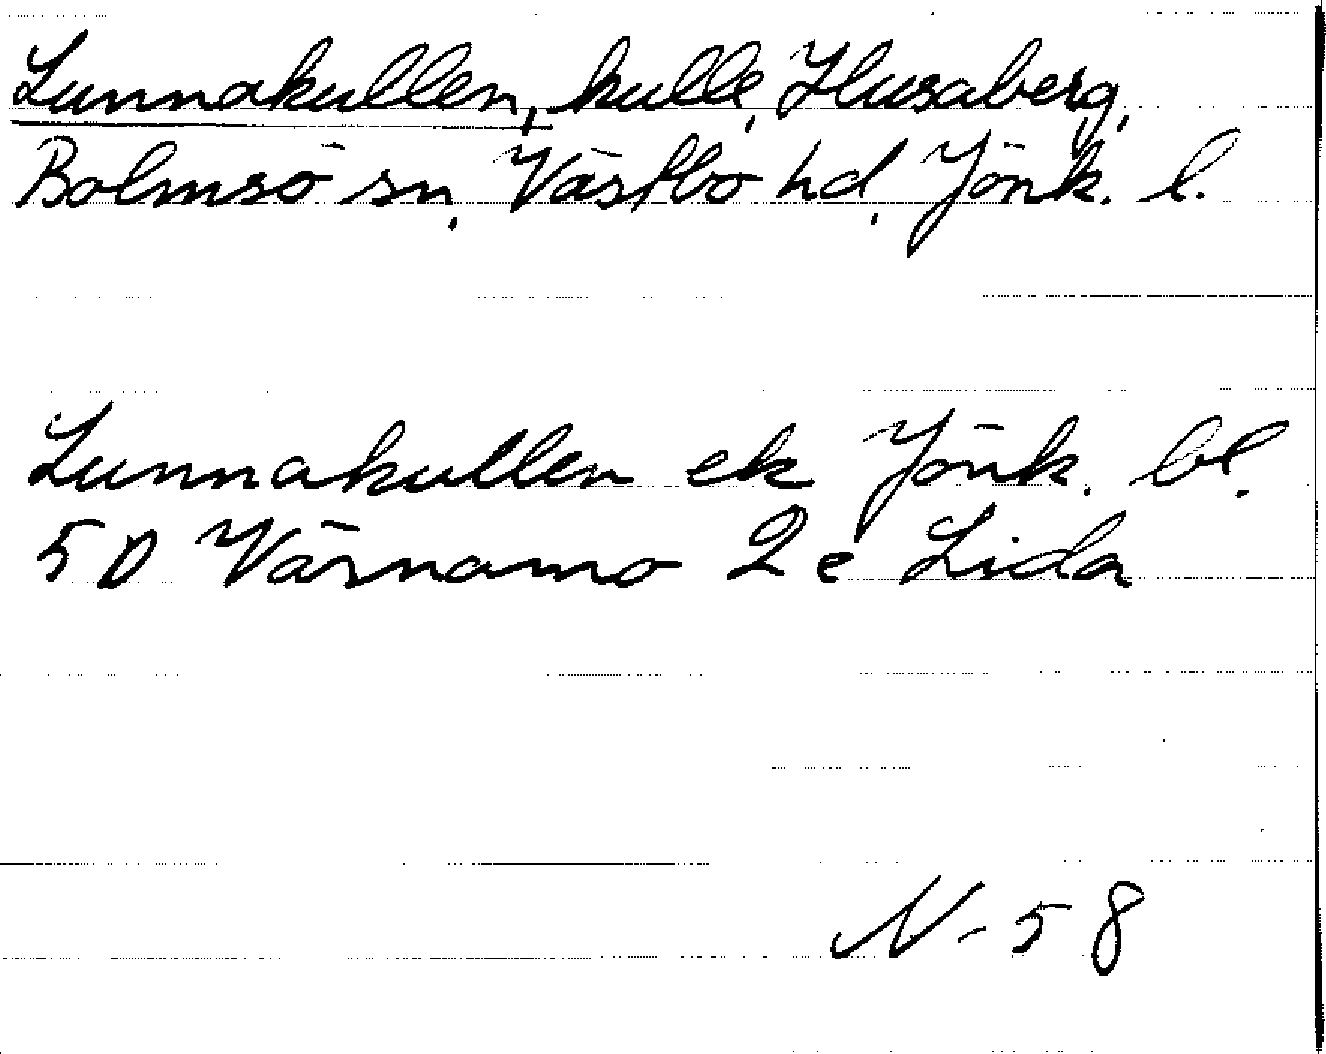 Lunnakullen, kulle, Husaberg,
Bolmsö sn, Västbo hd, Jönk. l.
Lunnakullen ek Jönk. bl.
5D Värnamo 2e Lida
N-58